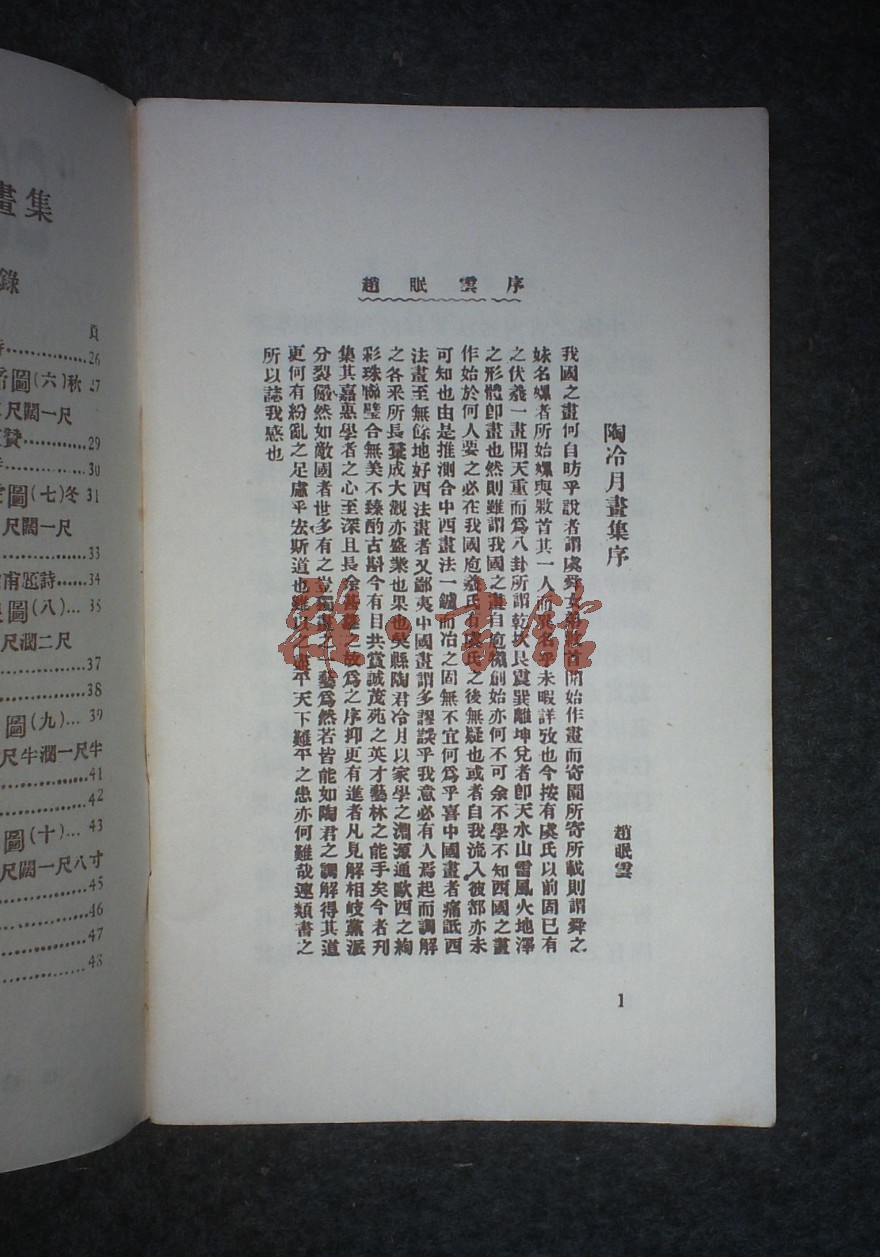 序雲眠趙
陶冷月畫集序
趙眠雲
我國之畫何自昉乎說者謂虞舜女弟敤首開始作畫而寄園所寄所載則謂舜之
妹名嫘者所始嫘與敤首其一人而異名乎未暇詳攷也今按有虞氏以前固已有
之伏羲一畫開天重而爲八卦所謂乾坎艮震巽離坤兌者卽天水山雷風火地澤
之形體卽畫也然則雖謂我國之畫自庖犧創始亦何不可余不學不知西國之畫
作始於何人要之必在我國庖羲氏有虞氏之後無疑也或者自我流入彼都亦未
可知也由是推測合中西畫法一鑪而冶之固無不宜何爲乎喜中國畫者痛詆西
法畫至無餘地好西法畫者又鄙夷中國畫謂多謬誤乎我意必有人焉起而調解
之各釆所長蔑成大觀亦盛業也果也吳縣陶君冷月以家學之淵源通歐西之絢
彩珠聯璧合無美不臻酌古斟今有目共賞誠茂苑之英才藝林之能手矣今者刋
集其嘉惠學者之心至深且長余
之故爲之序抑更有進者凡見解相岐黨派
分裂儼然如敵國者世多有之豈獨畫之一藝爲然若皆能如陶君之調解得其道
更何有紛亂之足慮乎宏斯道也雖以
平天下難平之患亦何難哉連類書之
所以誌我感也
1
畫集
錄
頁
26
圖(六)秋 27
尺闊一尺
贊 29
30
圖(七)冬 31
尺闊一尺
33
題詩 34
圖(八) 35
尺濶二尺
37
38
圖(九) 39
尺半濶一尺半
41
42
圖(十) 43
尺闊一尺八寸
45
46
47
48
書館